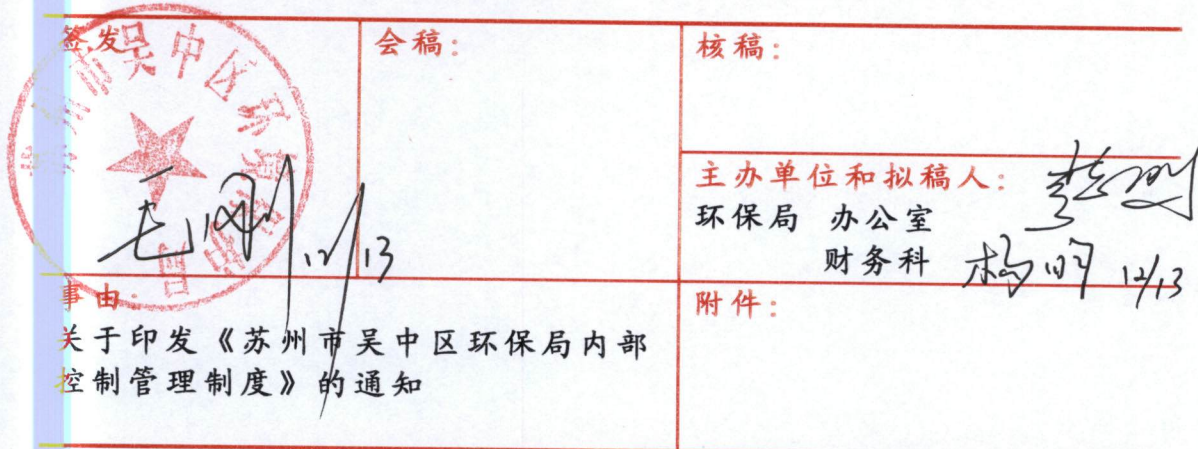 签发:
会稿:
核稿:
苏州市吴中区环境保护局
毛刚 12/13
主办单位和拟稿人:
环保局 办公室
财务科
12/13
事由:
关于印发《苏州市吴中区环保局内部
控制管理制度》的通知
附件: